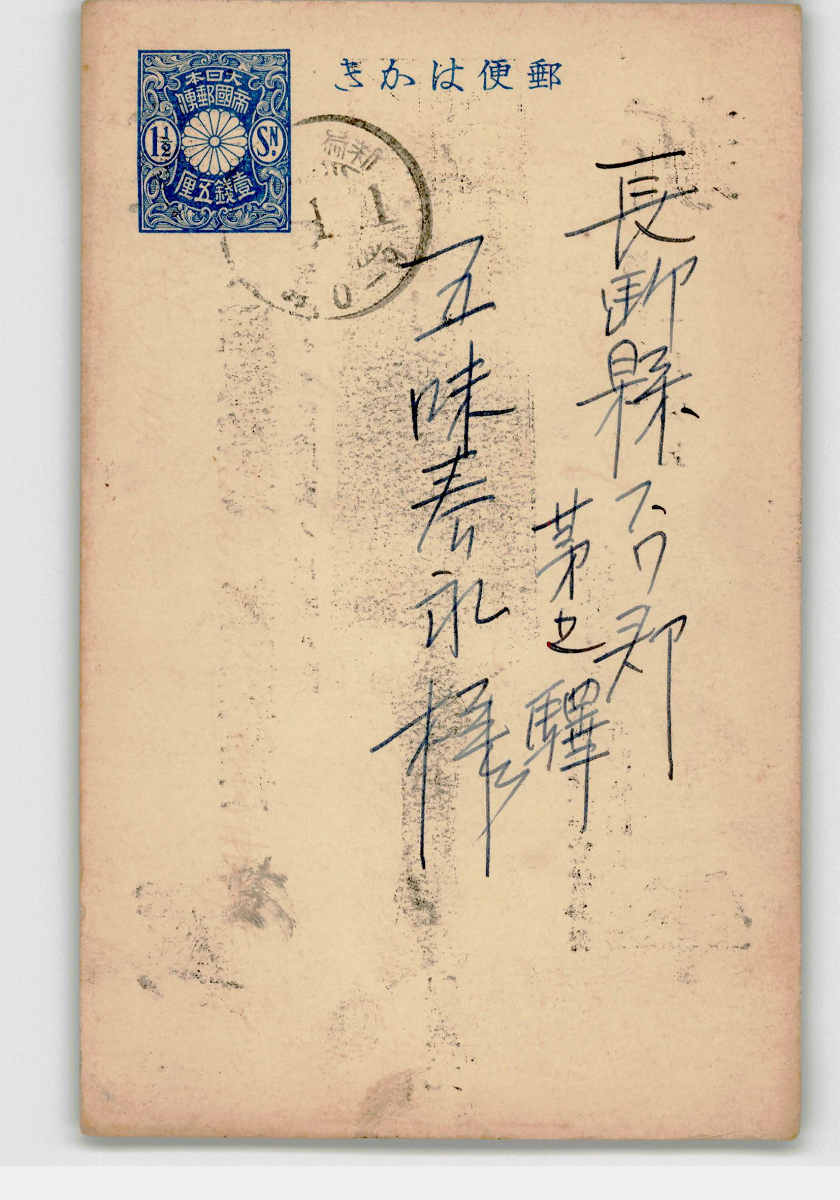 郵便はかき
大日本
帝國郵便
1½ SN.
壹錢五厘
1 1
長野縣スワ郡
茅之驛
五味春永様